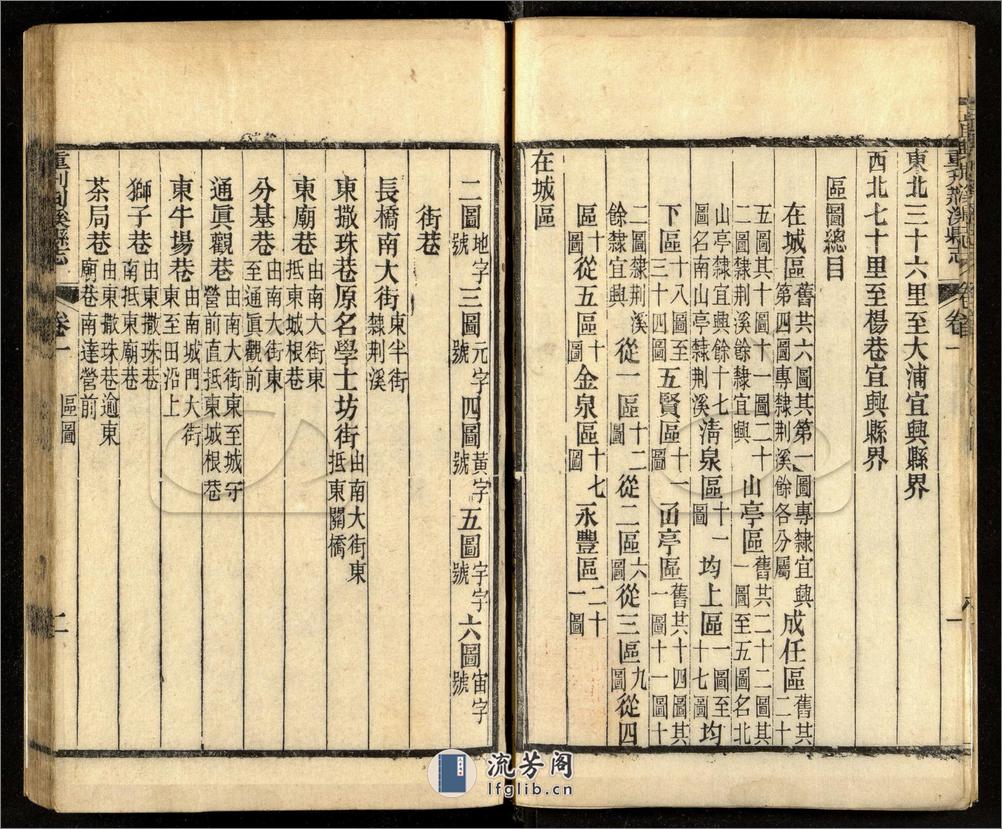 重刊荆溪縣志 卷一 一
東北三十六里至大浦宜興縣界
西北七十里至楊巷宜興縣界
區圖總目
在城區舊共六圖其第一圖專隸宜興第四圖專隸荆溪餘各分屬成任區舊共二十
五圖其十一圖二十二圖隸荆溪餘隸宜興山亭區舊共二十二圖其一圖至五圖名北
山亭隸宜興餘十七圖名南山亭隸荆溪清泉區十一圖均上區一圖至十七圖均
下區十八圖至三十四圖五賢區十一圖凾亭區舊共十四圖其一圖十一圖十
二圖隸荆溪餘隸宜興從一區十二圖從二區六圖從三區九圖從四
區十圖從五區十圖金泉區十七圖永豐區二十一圖
在城區
二圖地字號三圖元字號四圖黃字號五圖宇字號六圖宙字號
街巷
長橋南大街東半街隸荆溪
東撒珠巷原名學士坊街由南大街東抵東關橋
東廟巷由南大街東抵東城根巷
分基巷由南大街東至通眞觀前
通眞觀巷由南大街東至城守營前直抵東城根巷
東牛場巷由南城門大街東至田沿上
獅子巷由東撒珠巷南抵東廟巷
茶局巷由東撒珠巷逾東廟巷南達營前
重刊荆溪縣志 卷一 區圖 二
流芳阁
lfglib.cn